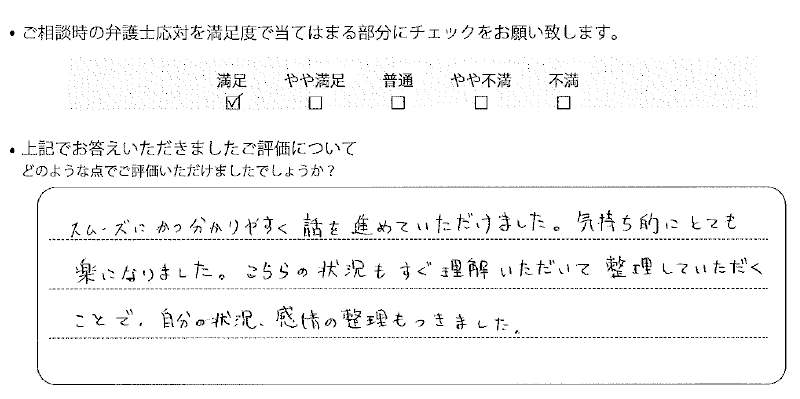 ・ご相談時の弁護士応対を満足度で当てはまる部分にチェックをお願い致します。
満足 やや満足 普通 やや不満 不満
☑ ☐ ☐ ☐ ☐
・上記でお答えいただきましたご評価について
どのような点でご評価いただけましたでしょうか？
スムーズにかつ分かりやすく話を進めていただけました。気持ち的にとても
楽になりました。こちらの状況もすぐ理解いただいて整理していただく
ことで、自分の状況、感情の整理もつきました。